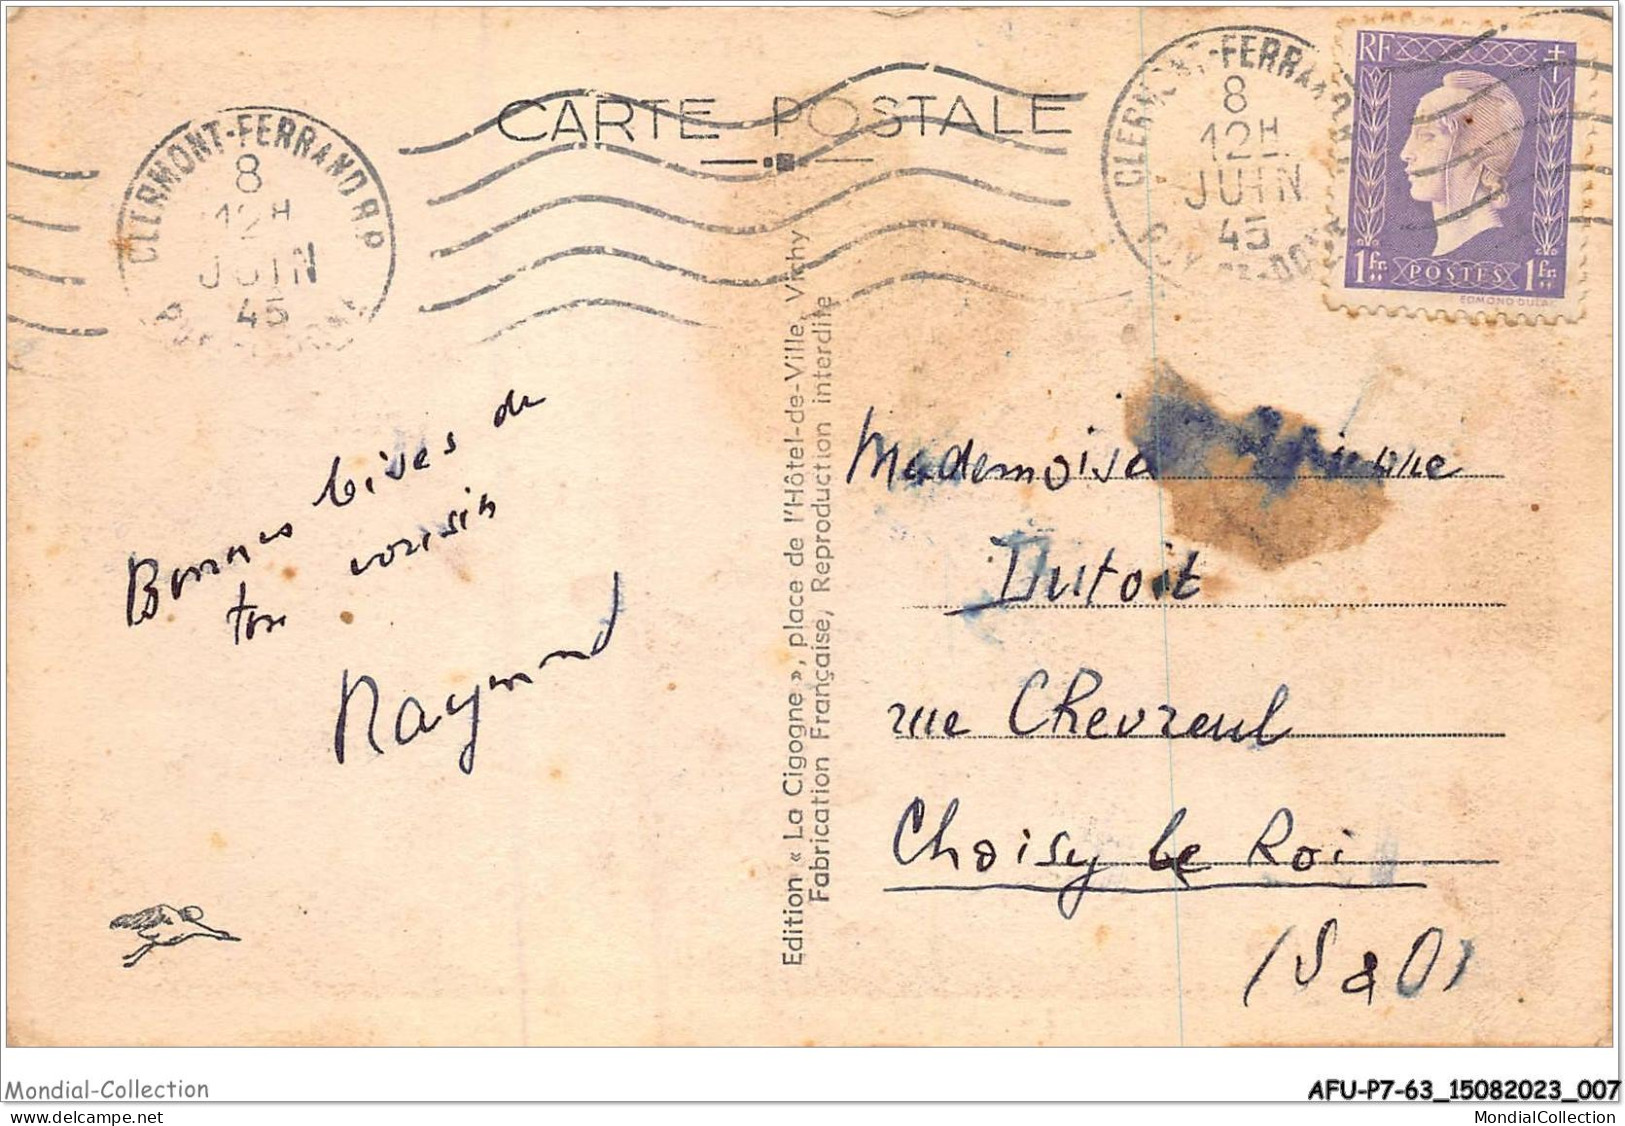 CARTE POSTALE
CLERMONT-FERRAND R.P
8
12H
JUIN
45
PUY-DE-DOME
CLERMONT-FERRAND R.P
8
12H
JUIN
45
PUY-DE-DOME
RF
1fr.
POSTES
1fr.
EDMOND DULAC
Bonnes bises de
ton voisin
Raymond
Edition « La Cigogne », place de l'Hôtel-de-Ville, Vichy
Fabrication Française, Reproduction interdite
Mademoise
Dutoit
rue Chevreul
Choisy le Roi
(S & O)
Mondial-Collection
AFU-P7-63_15082023_007
MondialCollection
MondialCollection.com